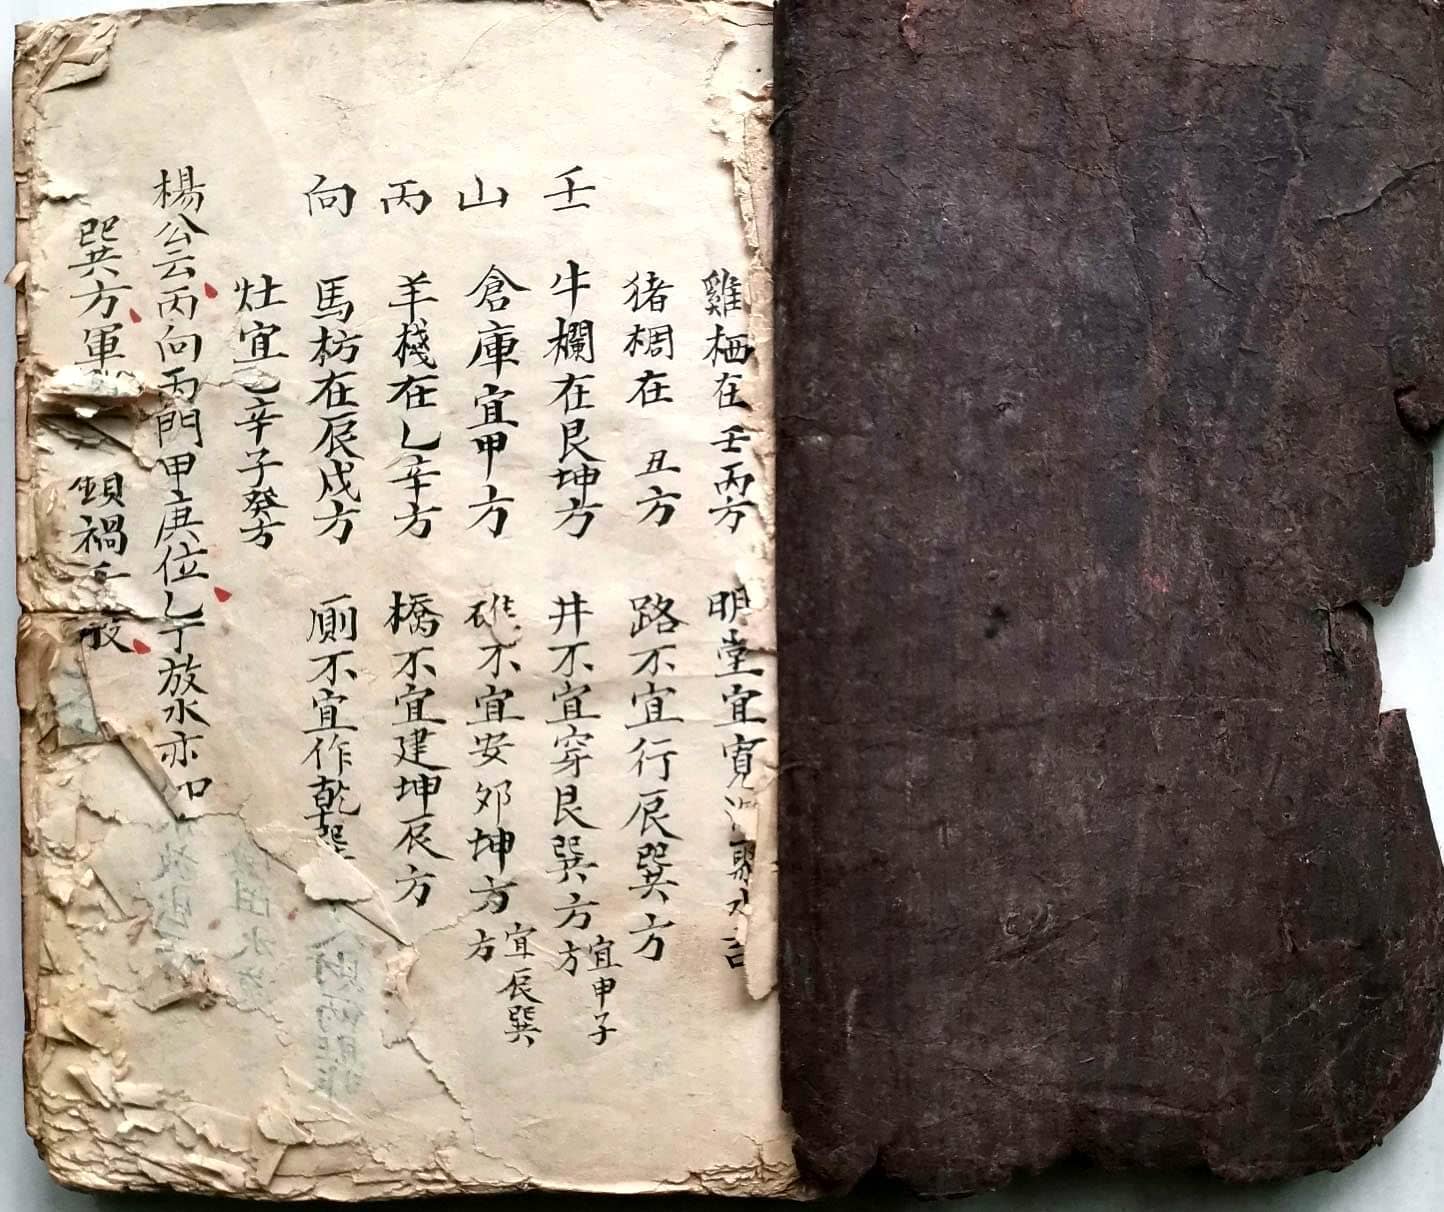 雞栖在壬丙方 明堂宜寬 聚水吉
猪椆在 丑方 路不宜行辰巽方
壬 牛欄在艮坤方 井不宜穿艮巽方 宜申子方
山 倉庫宜甲方 碓不宜安卯坤方 宜辰巽方
丙 羊棧在乙辛方 橋不宜建坤辰方
向 馬枋在辰戌方 廁不宜作乾巽
灶宜乙辛子癸方
楊公云丙向丙門甲庚位乙丁放水亦
巽方軍 禍